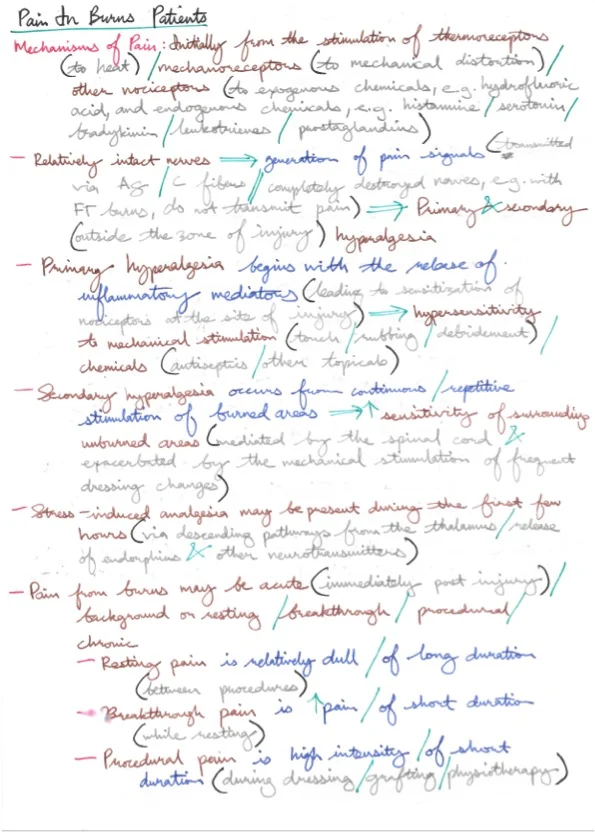 Pain In Burns Patients
Mechanisms of Pain: Initially from the stimulation of thermoreceptors
(to heat) / mechanoreceptors (to mechanical distortion) /
other nociceptors (to exogenous chemicals, e.g. hydrofluoric
acid, and endogenous chemicals, e.g. histamine / serotonin /
bradykinin / leukotrienes / prostaglandins)
— Relatively intact nerves ⟹ generation of pain signals (transmitted
via Aδ / C fibers // completely destroyed nerves, e.g. with
FT burns, do not transmit pain) ⟹ Primary & secondary
(outside the zone of injury) hyperalgesia
— Primary hyperalgesia begins with the release of
inflammatory mediators (leading to sensitization of
nociceptors at the site of injury) ⟹ hypersensitivity
to mechanical stimulation (touch / rubbing / debridement) /
chemicals (antiseptics / other topicals)
— Secondary hyperalgesia occurs from continuous / repetitive
stimulation of burned areas ⟹ ↑ sensitivity of surrounding
unburned areas (mediated by the spinal cord &
exacerbated by the mechanical stimulation of frequent
dressing changes)
— Stress-induced analgesia may be present during the first few
hours (via descending pathways from the thalamus / release
of endorphins & other neurotransmitters)
— Pain from burns may be acute (immediately post injury) /
background or resting / breakthrough / procedural /
chronic
— Resting pain is relatively dull / of long duration
(between procedures)
— Breakthrough pain is ↑ pain / of short duration
(while resting)
— Procedural pain is high intensity / of short
duration (during dressing / grafting / physiotherapy)